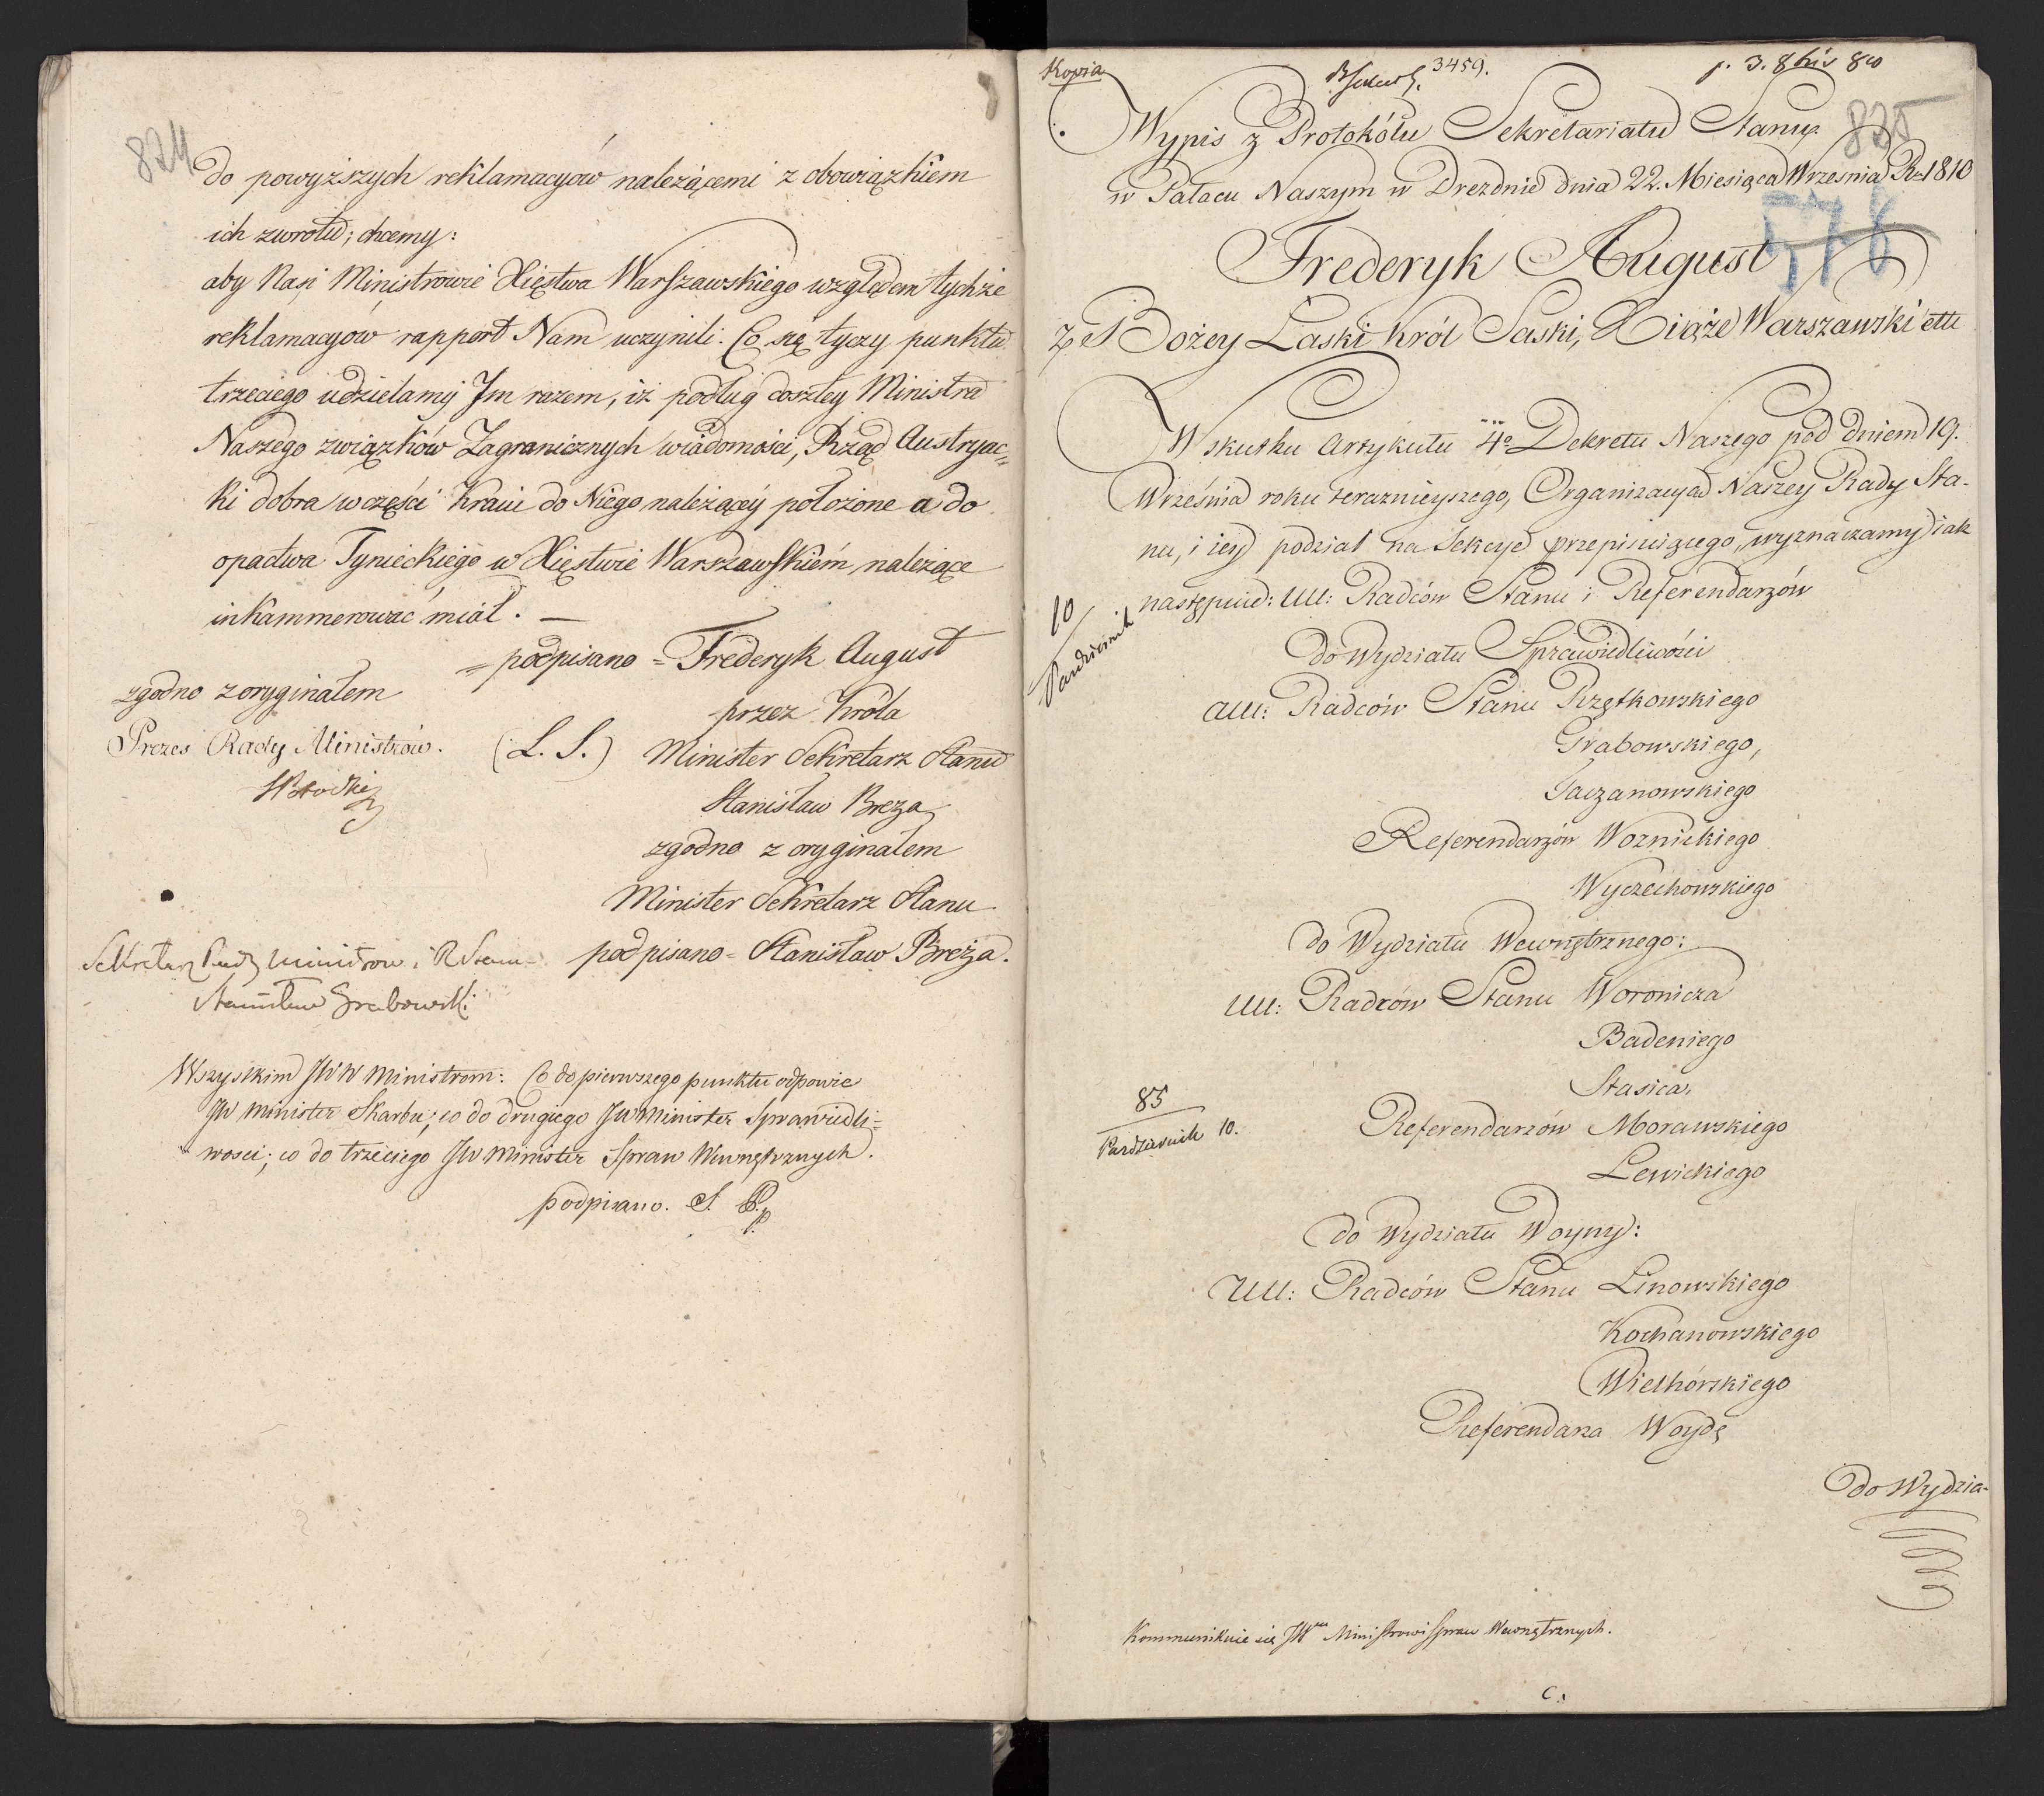 824
do powyższych reklamacyów należącemi z obowiązkiem
ich zwrotu; chcemy:
aby Nasi Ministrowie Xięstwa Warszawskiego względem tychże
reklamacyów rapport Nam uczynili. Co się tyczy punktu
trzeciego udzielamy Im razem, iż podług doszłey Ministra
Naszego związków Zagranicznych wiadomości, Rząd Austryac=
ki dobra w części Kraiu do Niego należący położone a do
opactwa Tynieckiego w Xięstwie Warszawskiém należące
inkammerować miał. —
= podpisano = Frederyk August
przez Króla
(L. S.) Minister Sekretarz Stanu
Stanisław Breza
zgodno z oryginałem
Minister Sekretarz Stanu
podpisano = Stanisław Breza.
zgodno z oryginałem
Prezes Rady Ministrów.
Sekretarz Rady Ministrow i R Stanu
Stanisław Grabowski
Wszystkim JWW Ministrom: Co do pierwszego punktu odpowie
JW Minister Skarbu; co do drugiego JW Minister Sprawiedli=
wosci; co do trzeciego JW Minister Spraw Wewnętrznych.
podpisano. S. P.
Kopia
3459.
p. 3. 8bris 810
825
Wypis z Protokółu Sekretariatu Stanu
w Pałacu Naszym w Dreznie dnia 22. Miesiąca Wrzesnia R. 1810
578
Frederyk August
z Bożey Łaski Król Saski, Xiąże Warszawski ettc
W skutku Artykułu 4o Dekretu Naszego pod dniem 19.
Września roku teraznieyszego, Organizacyą Naszey Rady Sta-
nu, i iey podział na Sekcye przepisuiącego, wyznaczamy iak
następuie: UU: Radców Stanu i Referendarzów
10
Pazdziernik
do Wydziału Sprawiedliwości
UU: Radców Stanu Rzętkowskiego
Grabowskiego,
Taczanowskiego
Referendarzów Woznickiego
Wyczechowskiego
do Wydziału Wewnętrznego:
UU: Radców Stanu Woronicza
Badeniego
Stasica,
85
Pazdziernik 10.
Referendarzów Morawskiego
Lewickiego
do Wydziału Woyny:
UU: Radców Stanu Linowskiego
Kochanowskiego
Wielhórskiego
Referendarza Woydę
do Wydzia-
Kommunikuie się JWmu Ministrowi Spraw Wewnętrznych.
C.